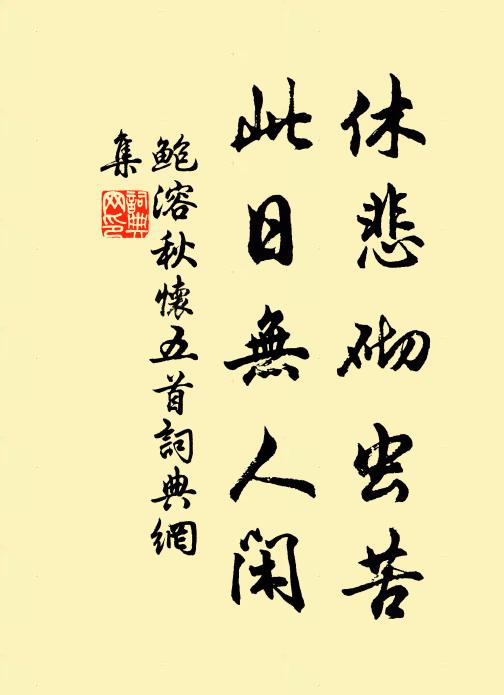 休悲砌虫苦
此日無人闲
鲍溶秋懷五首詞典網
集
詞典
网印